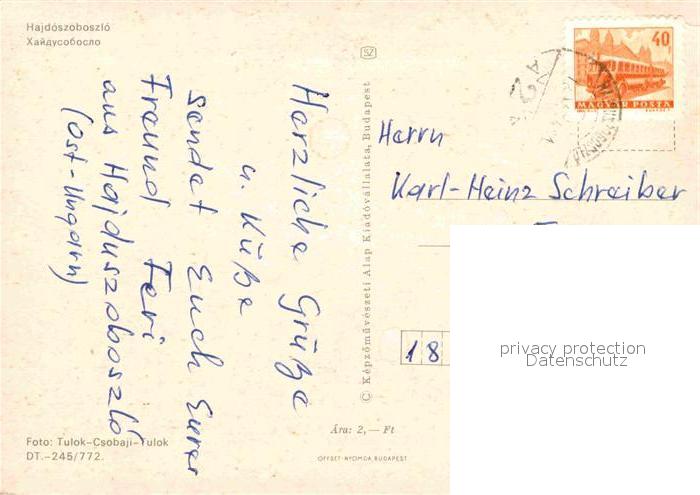 Hajdószoboszló
Хайдусобосло
Herzliche Grüße
u. Küße
sendet Euch Eurer
Freund Feri
aus Hajduszoboszló
(Ost-Ungarn)
Foto: Tulok–Csobaji–Tulok
DT.–245/772.
SZ
© Képzőművészeti Alap Kiadóvállalata, Budapest
Ára: 2,— Ft
OFFSET-NYOMDA, BUDAPEST
40
MAGYAR POSTA
Herrn
Karl-Heinz Schreiber
18
privacy protection
Datenschutz